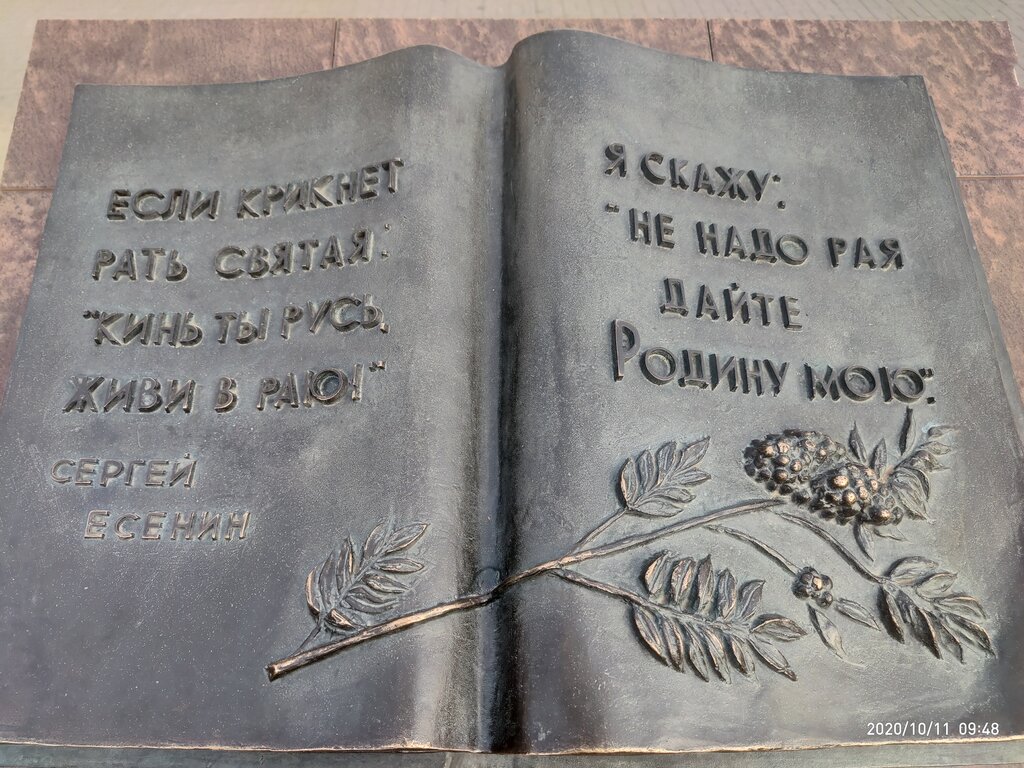 ЕСЛИ КРИКНЕТ
РАТЬ СВЯТАЯ:
"КИНЬ ТЫ РУСЬ,
ЖИВИ В РАЮ!"
СЕРГЕЙ
ЕСЕНИН
Я СКАЖУ:
"НЕ НАДО РАЯ
ДАЙТЕ
РОДИНУ МОЮ".
2020/10/11 09:48